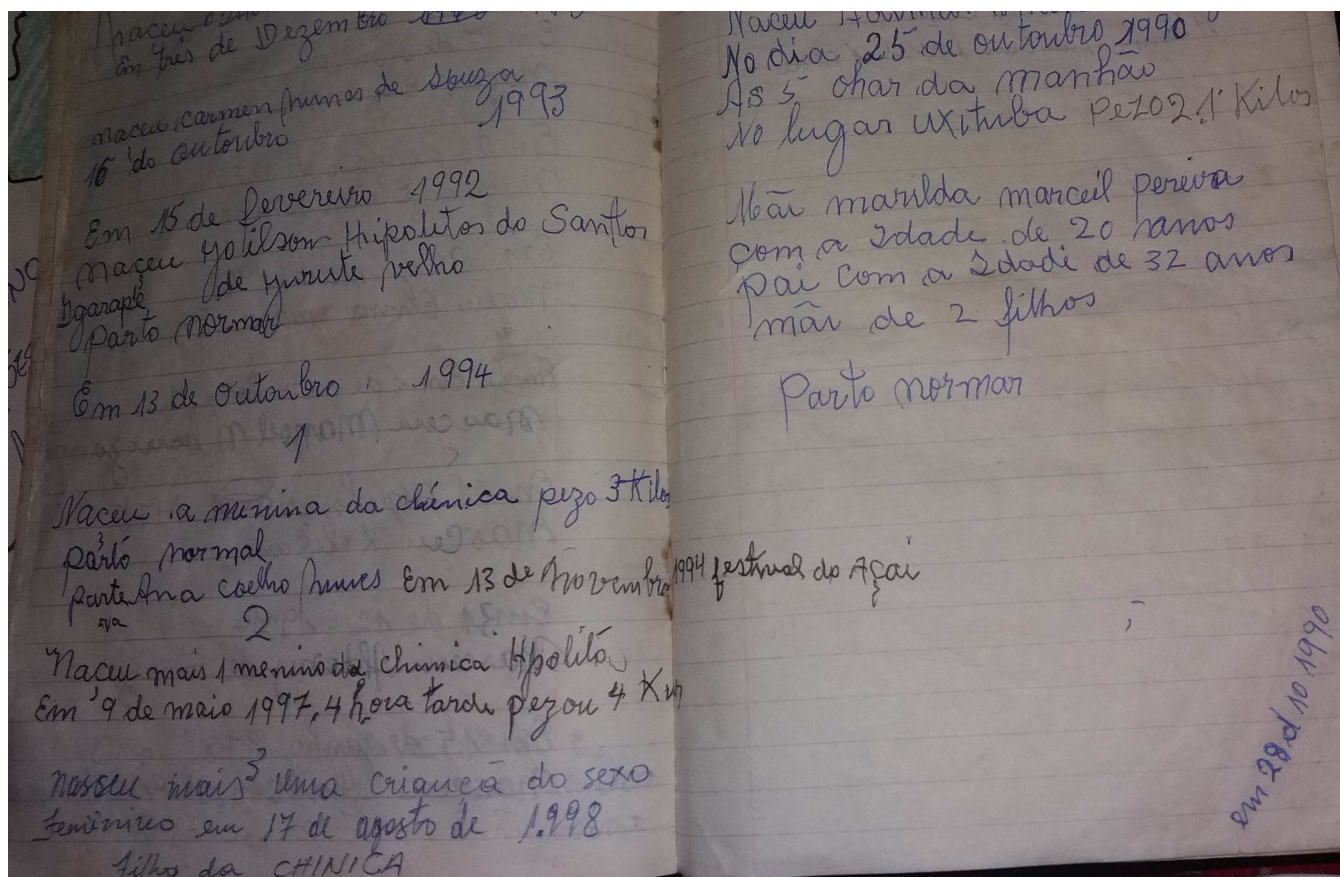 naceu
Em três de Dezembro
naceu carmen nunes de Souza
1993
16 do outoubro
Em 15 de Fevereiro 1992
naçeu yoilson Hipolitos do Santos
Dgarapé de yurute velho
Parto normar
Em 13 de Outoubro 1994
1
Naceu a menina da chinica pezo 3 Kilos
parto normal
Parte Ana Coelho nunes Em 13 de Novembro 1994 festival do Açaí
2
Naceu mais 1 menino da chinica Hpolito
Em 9 de maio 1997, 4 hora tarde pezou 4
3
nasseu mais uma criança do sexo
feminino em 17 de agosto de 1.998
filho da CHINICA
Naceu
No dia 25 de outoubro 1990
As 5 ohar da manhão
No lugar uxituba Pezo 2.1 Kilos
Mãi marilda marceil pereira
com a Idade de 20 hanos
pai com a Idadi de 32 anos
mãi de 2 filhos
Parto normar
em 28 d 10 1990